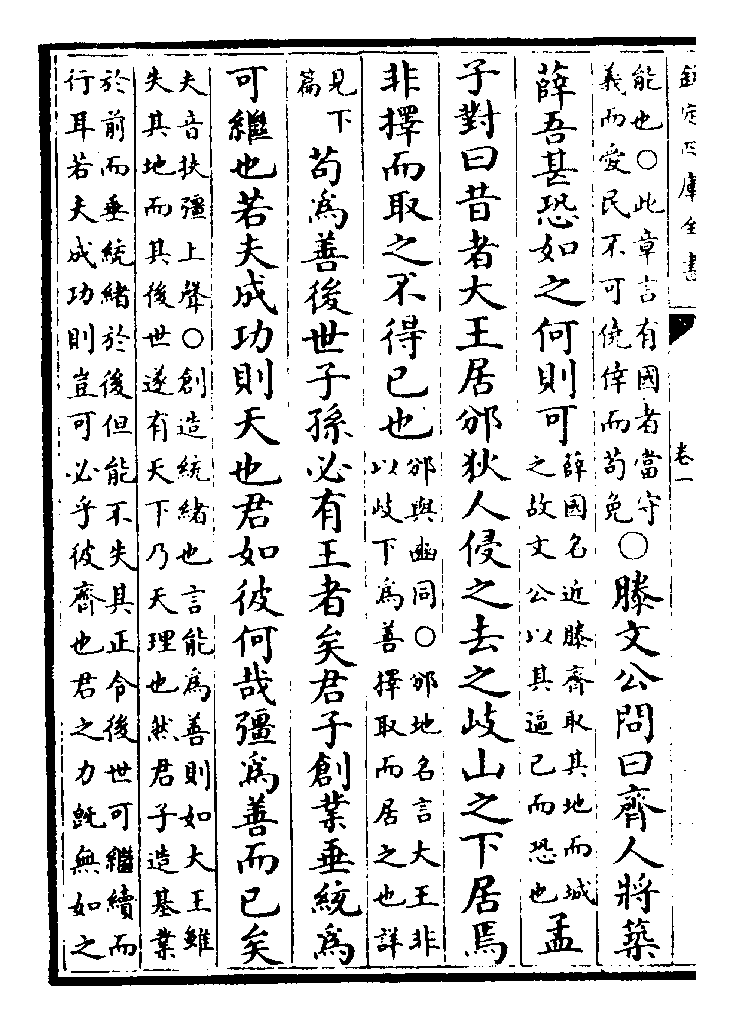 欽定四庫全書
卷一
能也○此章言有國者當守
義而愛民不可僥倖而苟免
○滕文公問曰齊人將築
薛吾甚恐如之何則可
薛國名近滕齊取其地而城
之故文公以其逼己而恐也
孟
子對曰昔者大王居邠狄人侵之去之岐山之下居焉
非擇而取之不得已也
邠與豳同○邠地名言大王非
以岐下爲善擇取而居之也詳
見下
篇
苟爲善後世子孫必有王者矣君子創業垂統爲
可繼也若夫成功則天也君如彼何哉彊爲善而已矣
夫音扶彊上聲○創造統緒也言能爲善則如大王雖
失其地而其後世遂有天下乃天理也然君子造基業
於前而垂統緒於後但能不失其正令後世可繼續而
行耳若夫成功則豈可必乎彼齊也君之力旣無如之